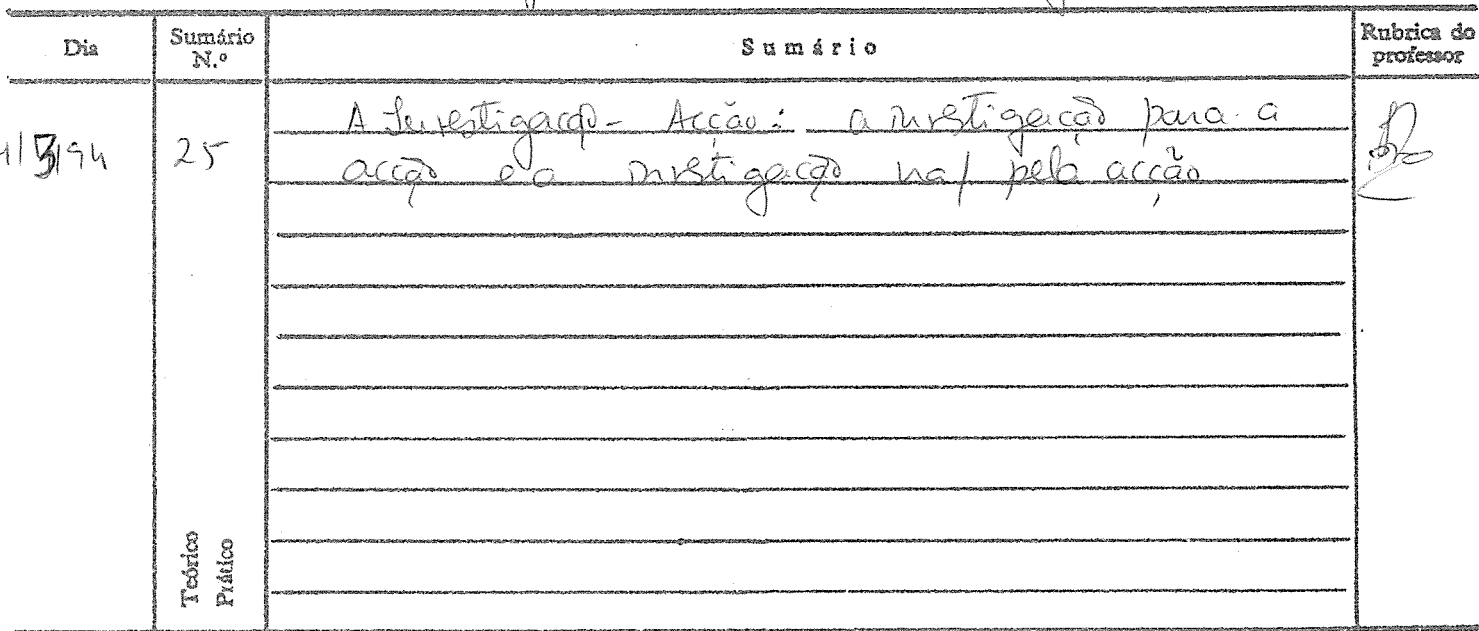 Dia
Sumário N.º
Sumário
Rubrica do professor
/94
25
A Investigação - Acção: a investigação para a
acção e a investigação na/ pela acção
Teórico
Prático